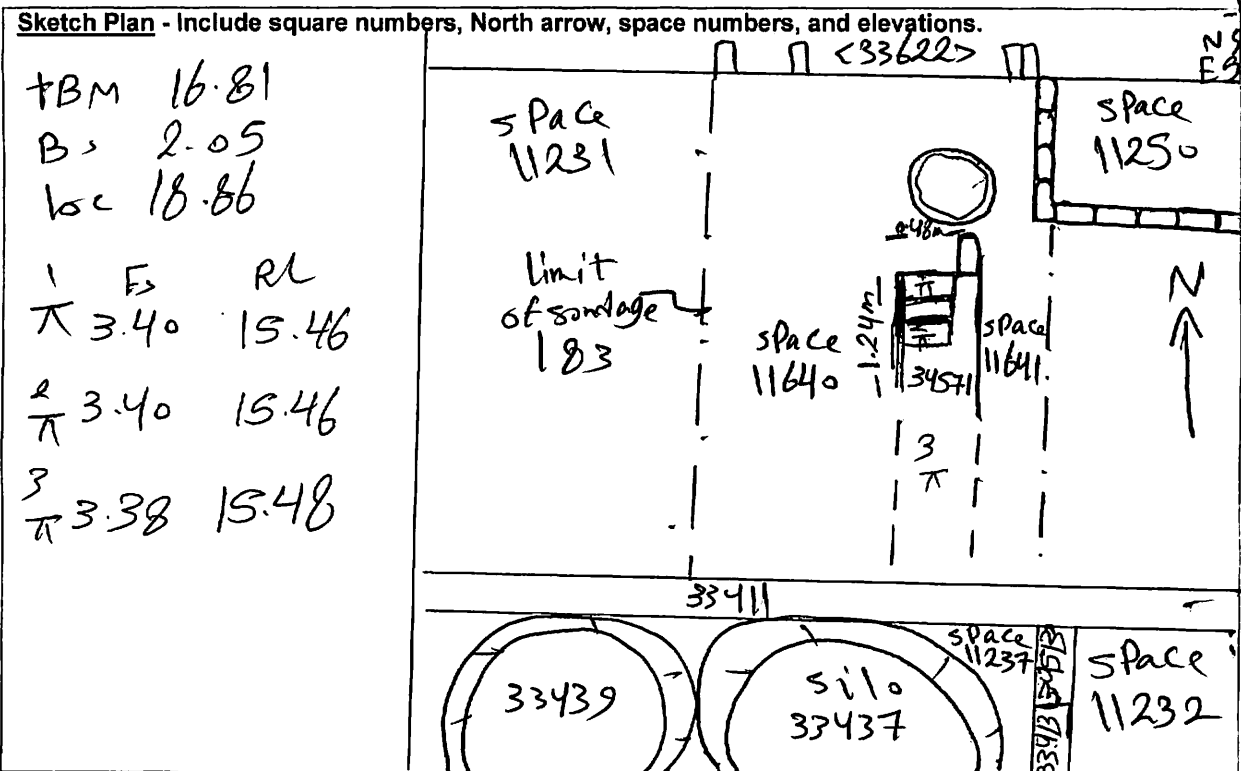 Sketch Plan - Include square numbers, North arrow, space numbers, and elevations.
TBM 16.81
Bs 2.05
loc 18.86
Fs RL
1 3.40 15.46
2 3.40 15.46
3 3.38 15.48
<33622>
N
E
Space
11231
Space
11250
0.48m
limit
of sondage
183
1.24m
Space
11640
34571
Space
11641
N
3
33411
33439
Silo
33437
Space
11237
Space
11232